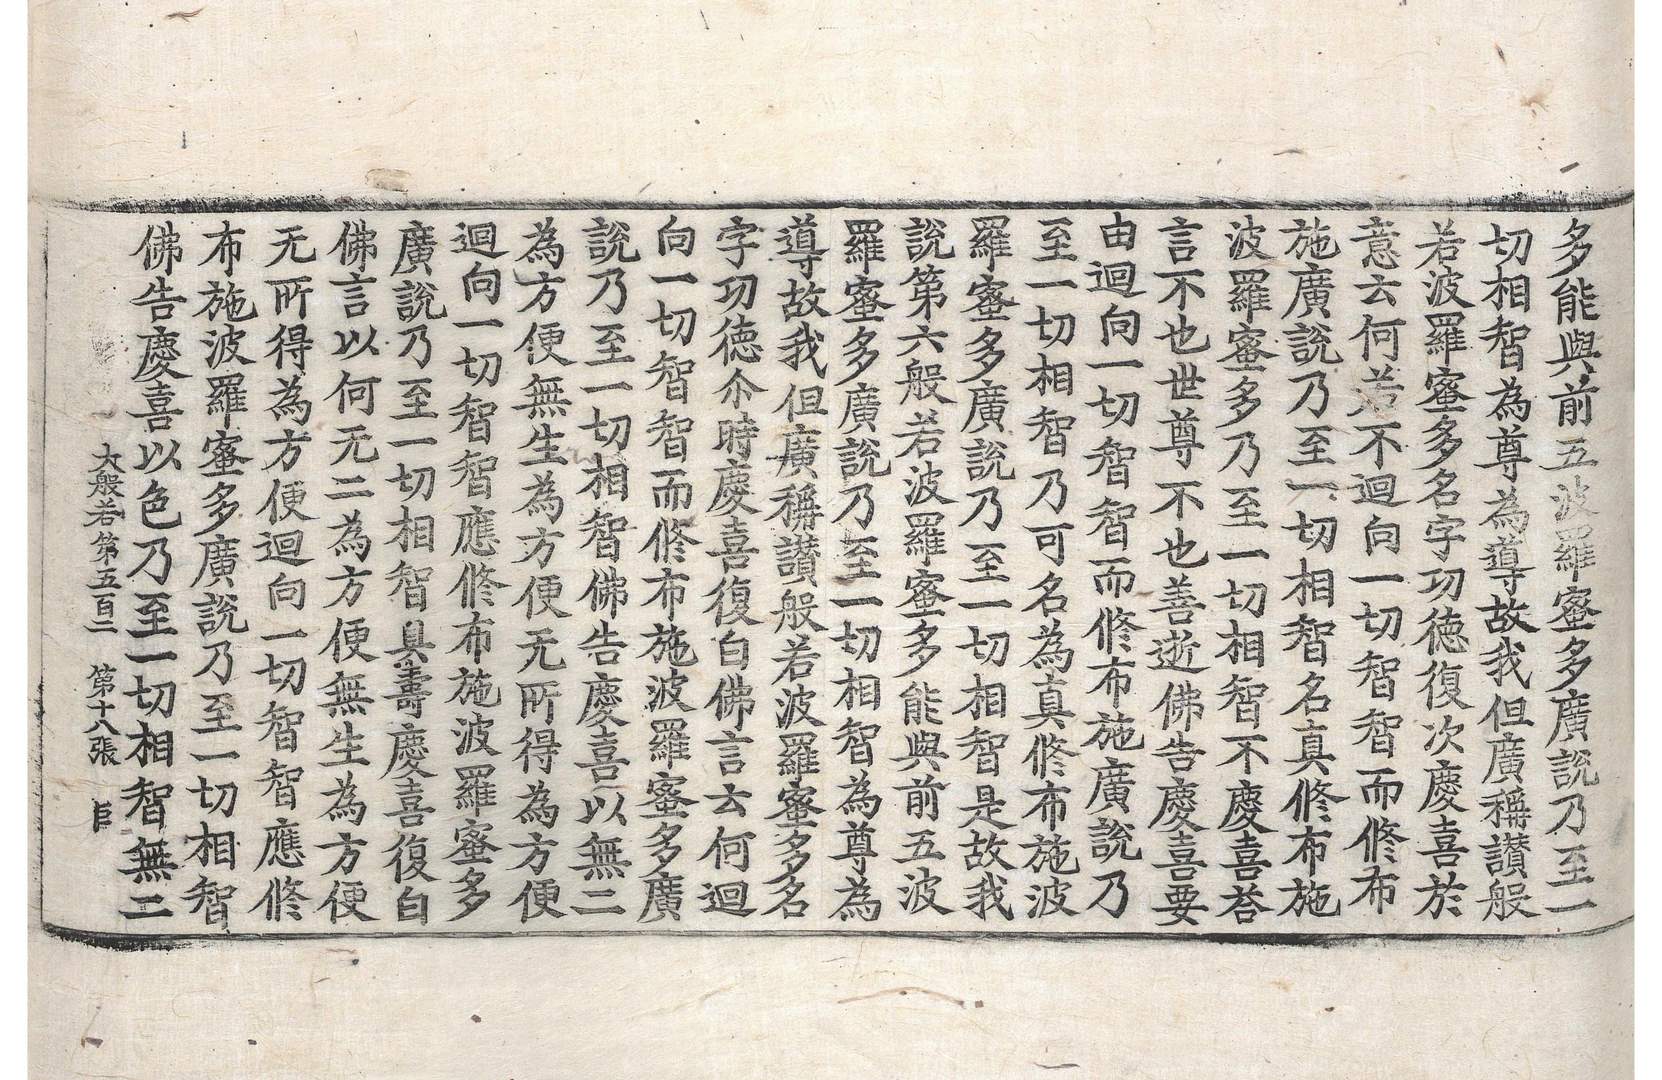 多能與前五波羅蜜多廣說乃至一
切相智為尊為導故我但廣稱讃般
若波羅蜜多名字功德復次慶喜於
意云何若不迴向一切智智而修布
施廣說乃至一切相智名真修布施
波羅蜜多乃至一切相智不慶喜荅
言不也世尊不也善逝佛告慶喜要
由迴向一切智智而修布施廣說乃
至一切相智乃可名為真修布施波
羅蜜多廣說乃至一切相智是故我
說第六般若波羅蜜多能與前五波
羅蜜多廣說乃至一切相智為尊為
導故我但廣稱讃般若波羅蜜多名
字功德尒時慶喜復白佛言云何迴
向一切智智而修布施波羅蜜多廣
說乃至一切相智佛告慶喜以無二
為方便無生為方便无所得為方便
迴向一切智智應修布施波羅蜜多
廣說乃至一切相智具壽慶喜復白
佛言以何无二為方便無生為方便
无所得為方便迴向一切智智應修
布施波羅蜜多廣說乃至一切相智
佛告慶喜以色乃至一切相智無二
大般若第五百二 第十八張 臣